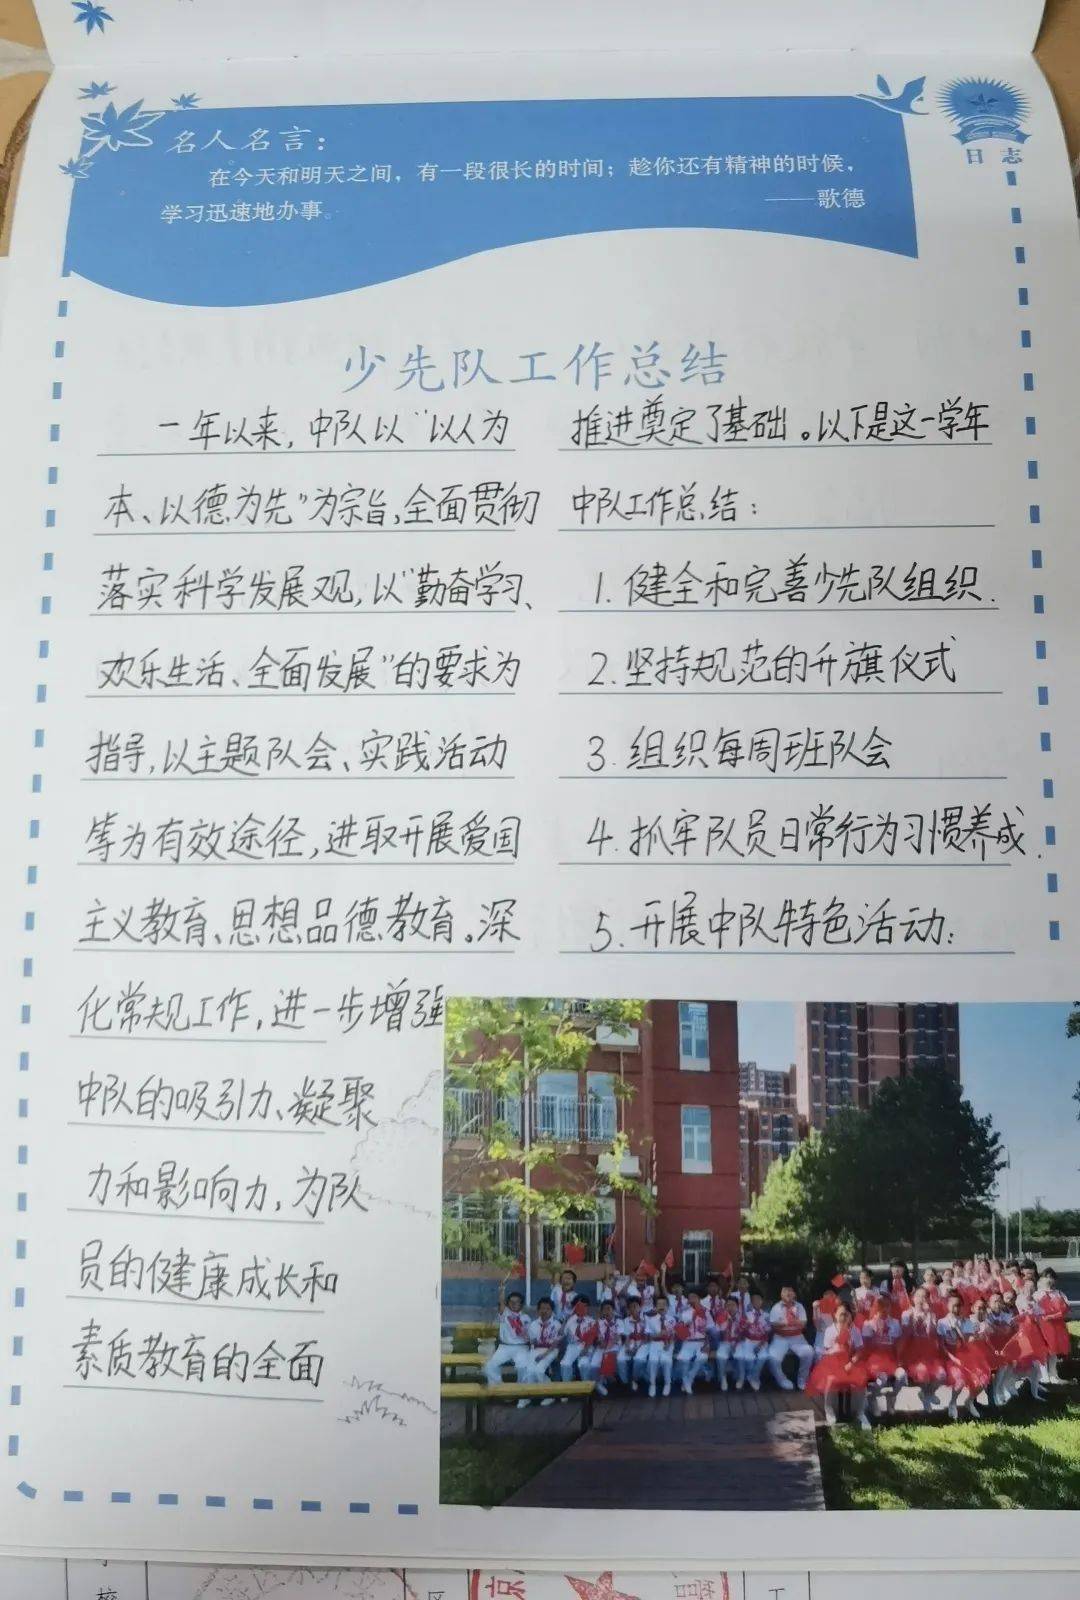 名人名言：
在今天和明天之间，有一段很长的时间；趁你还有精神的时候，
学习迅速地办事。
——歌德
日志
少先队工作总结
一年以来，中队以“以人为
本、以德为先”为宗旨，全面贯彻
落实科学发展观，以“勤奋学习、
欢乐生活、全面发展”的要求为
指导，以主题队会、实践活动
等为有效途径，进取开展爱国
主义教育、思想品德教育。深
化常规工作，进一步增强
中队的吸引力、凝聚
力和影响力，为队
员的健康成长和
素质教育的全面
推进奠定了基础。以下是这一学年
中队工作总结：
1.健全和完善少先队组织.
2.坚持规范的升旗仪式
3.组织每周班队会
4.抓牢队员日常行为习惯养成.
5.开展中队特色活动：
校
区
京
管
工